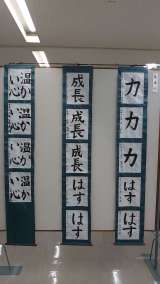 力
力
力
はす
はす
成長
成長
成長
はす
はす
温か
い心
温か
い心
温か
い心
温か
い心